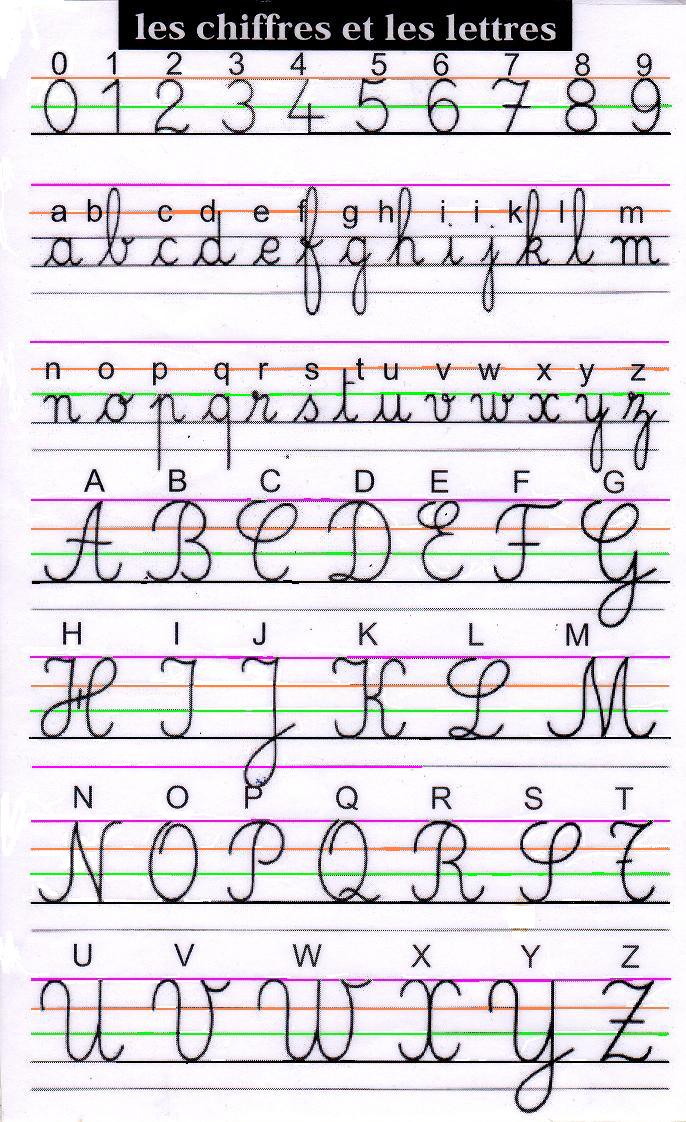 les chiffres et les lettres
0 1 2 3 4 5 6 7 8 9
0 1 2 3 4 5 6 7 8 9
a b c d e f g h i i k l m
a b c d e f g h i j k l m
n o p q r s t u v w x y z
n o p q r s t u v w x y z
A B C D E F G
A B C D E F G
H I J K L M
H I J K L M
N O P Q R S T
N O P Q R S T
U V W X Y Z
U V W X Y Z